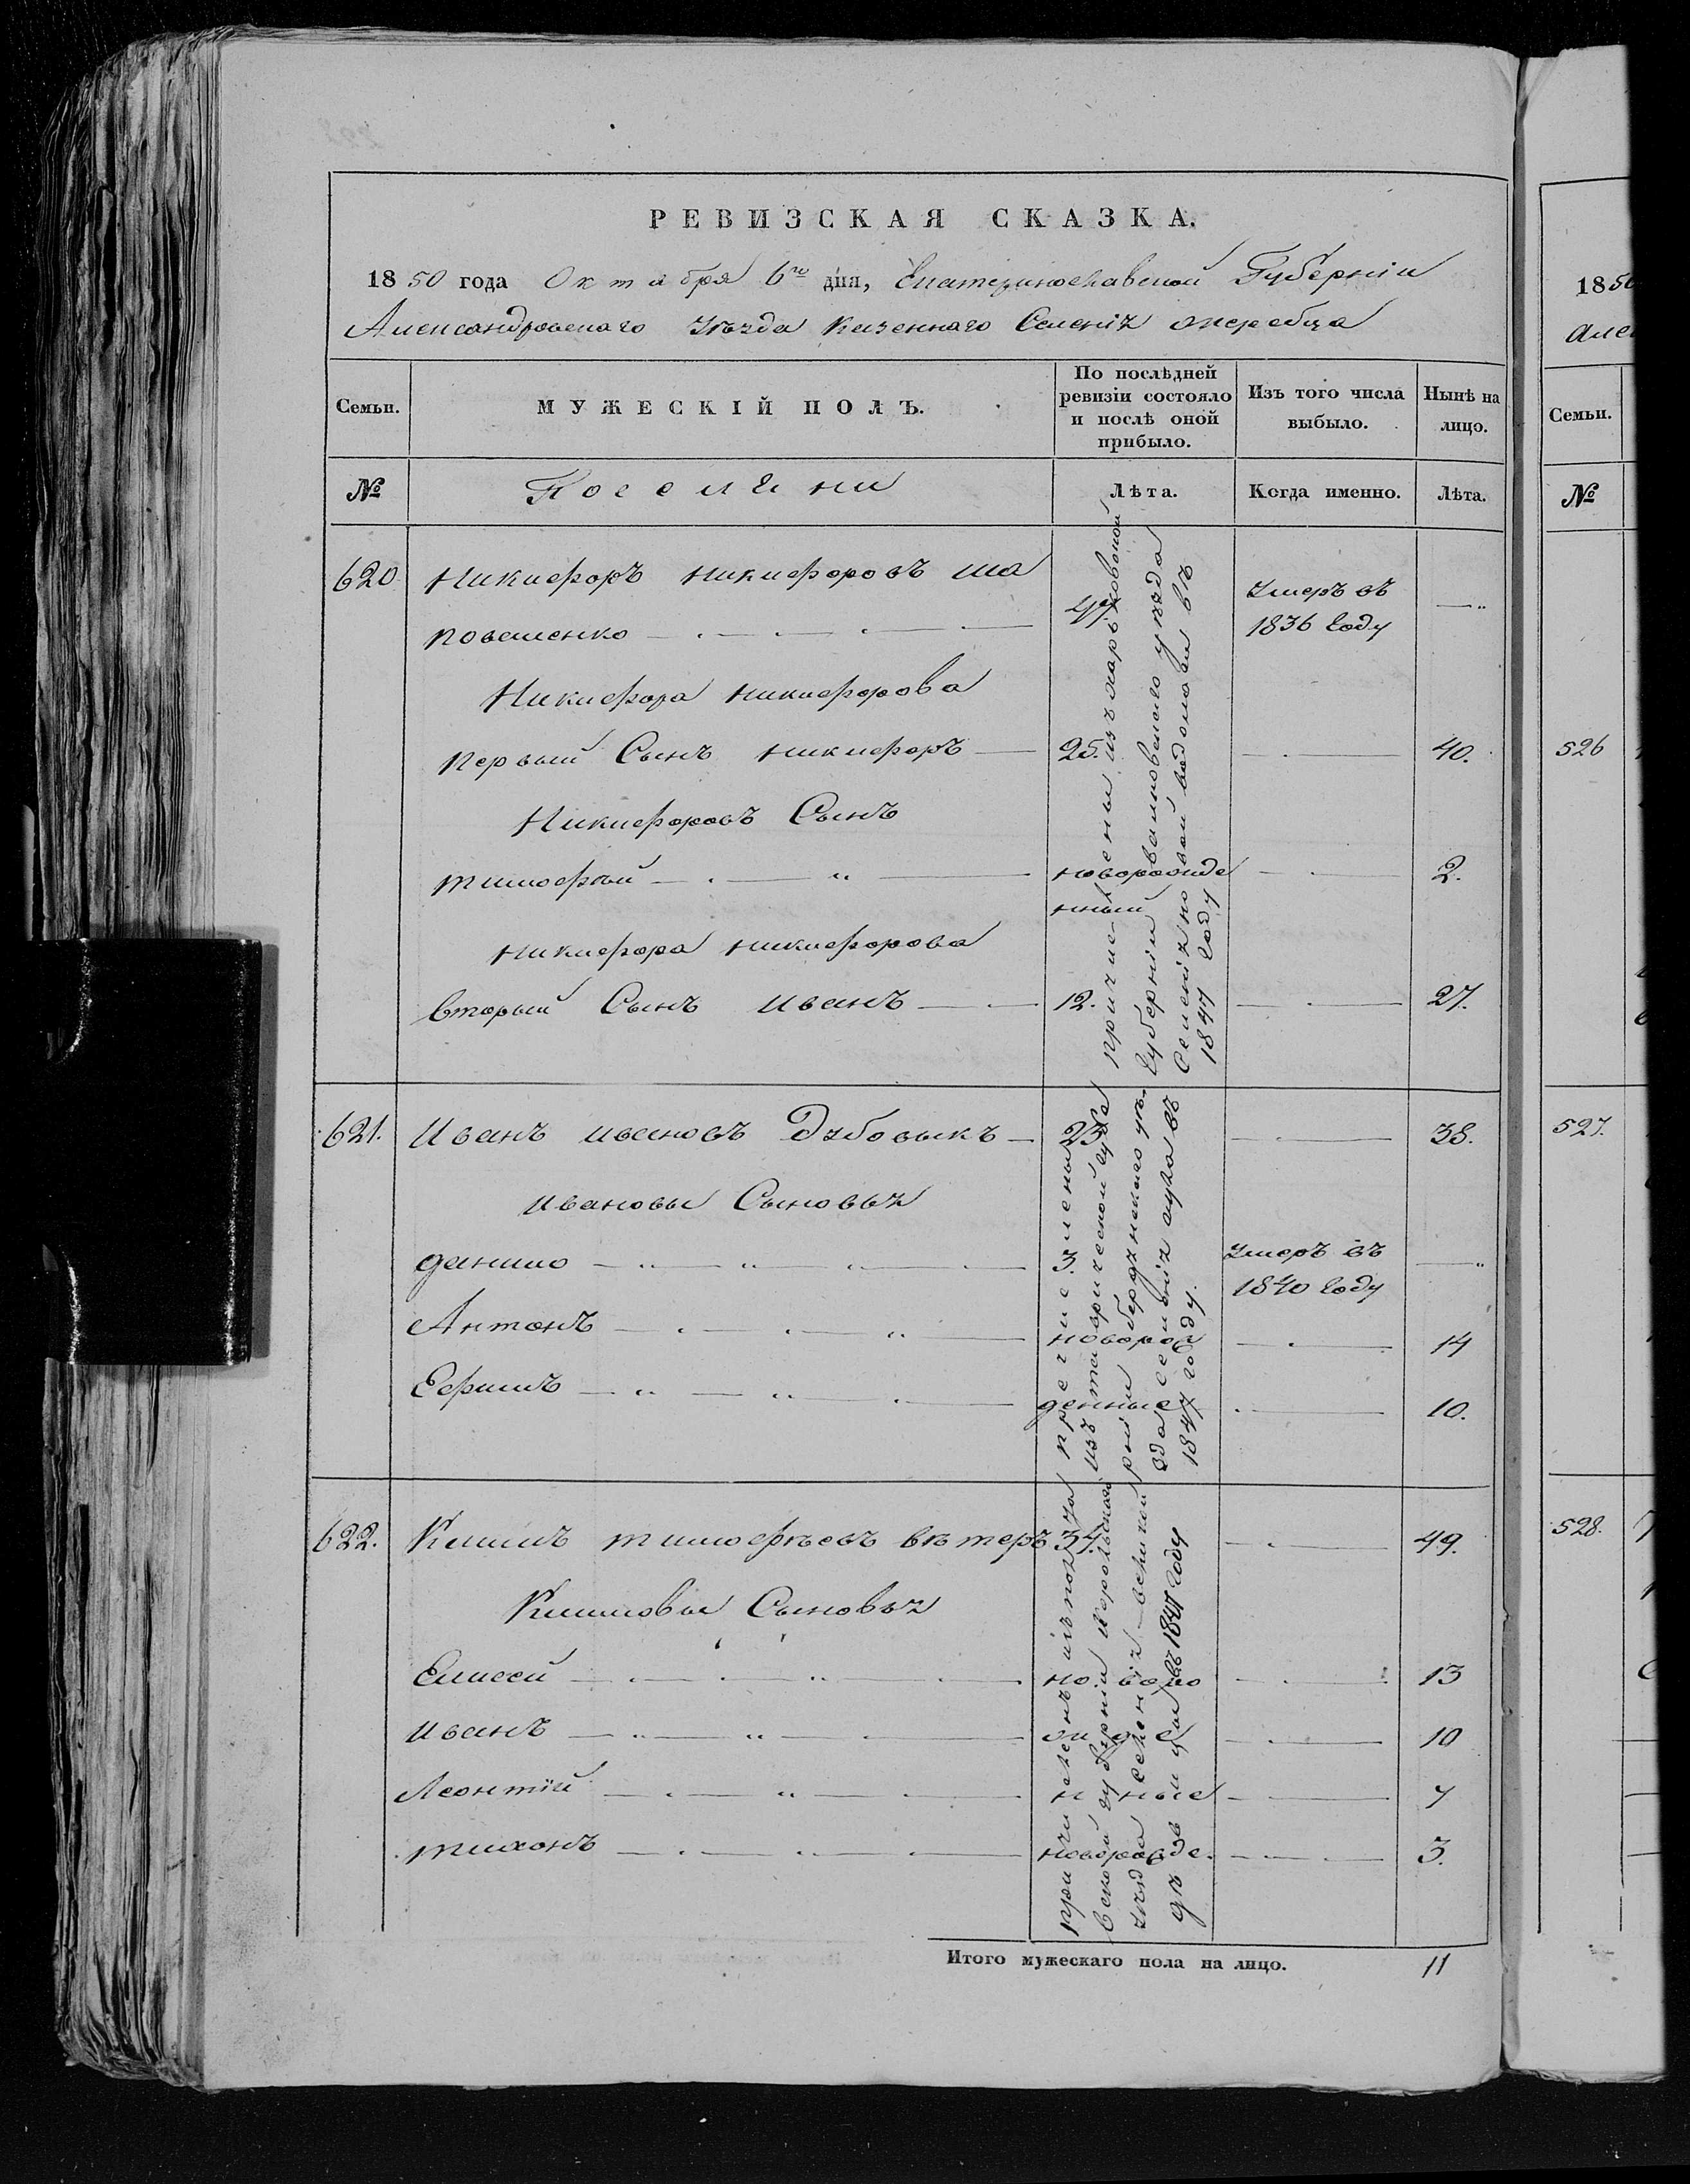 РЕВИЗСКАЯ СКАЗКА.
1850 года Октября 6го дня, Екатеринославской Губерніи
Александровскаго уѣзда Казеннаго Селенія жеребца
Семьи.
МУЖЕСКІЙ ПОЛЪ.
По послѣдней ревизіи состояло и послѣ оной прибыло.
Изъ того числа выбыло.
Нынѣ на лицо.
№
Поселяни
Лѣта.
Когда именно.
Лѣта.
620 Никифоръ никифоровъ ша
умеръ въ
1836 Году
Никифора никифорова
первый Сынъ никифоръ 25. 40.
Никифоровъ Сынъ
тимофѣй новорожде 2.
нный
никифора никифорова
вторый Сынъ иванъ 12. 27.
причислены изъ харьковской
Губерніи уѣзда
Селенія
1847 Году
621. Иванъ ивановъ Дубовыкъ 23. 38.
ивановы Сыновья
данило 3. умеръ въ
1840 Году
Антонъ новорож 14
Ефимъ денные 10.
причислены
изъ таврической губе
рніи бердянскаго уѣ
зда селенія въ
1847 году.
622. Климъ тимофѣевъ вѣтеръ 34. 49.
Климовы Сыновья
Елисей но воро 13
иванъ жде 10
Леонтій нные 7
тихонъ новорожде. 3.
причисленъ изъ полта
вской губерніи
уѣзда селенія
въ 1847 году
Итого мужескаго пола на лицо. 11
1850
Але
Семьи.
№
526
527.
528.